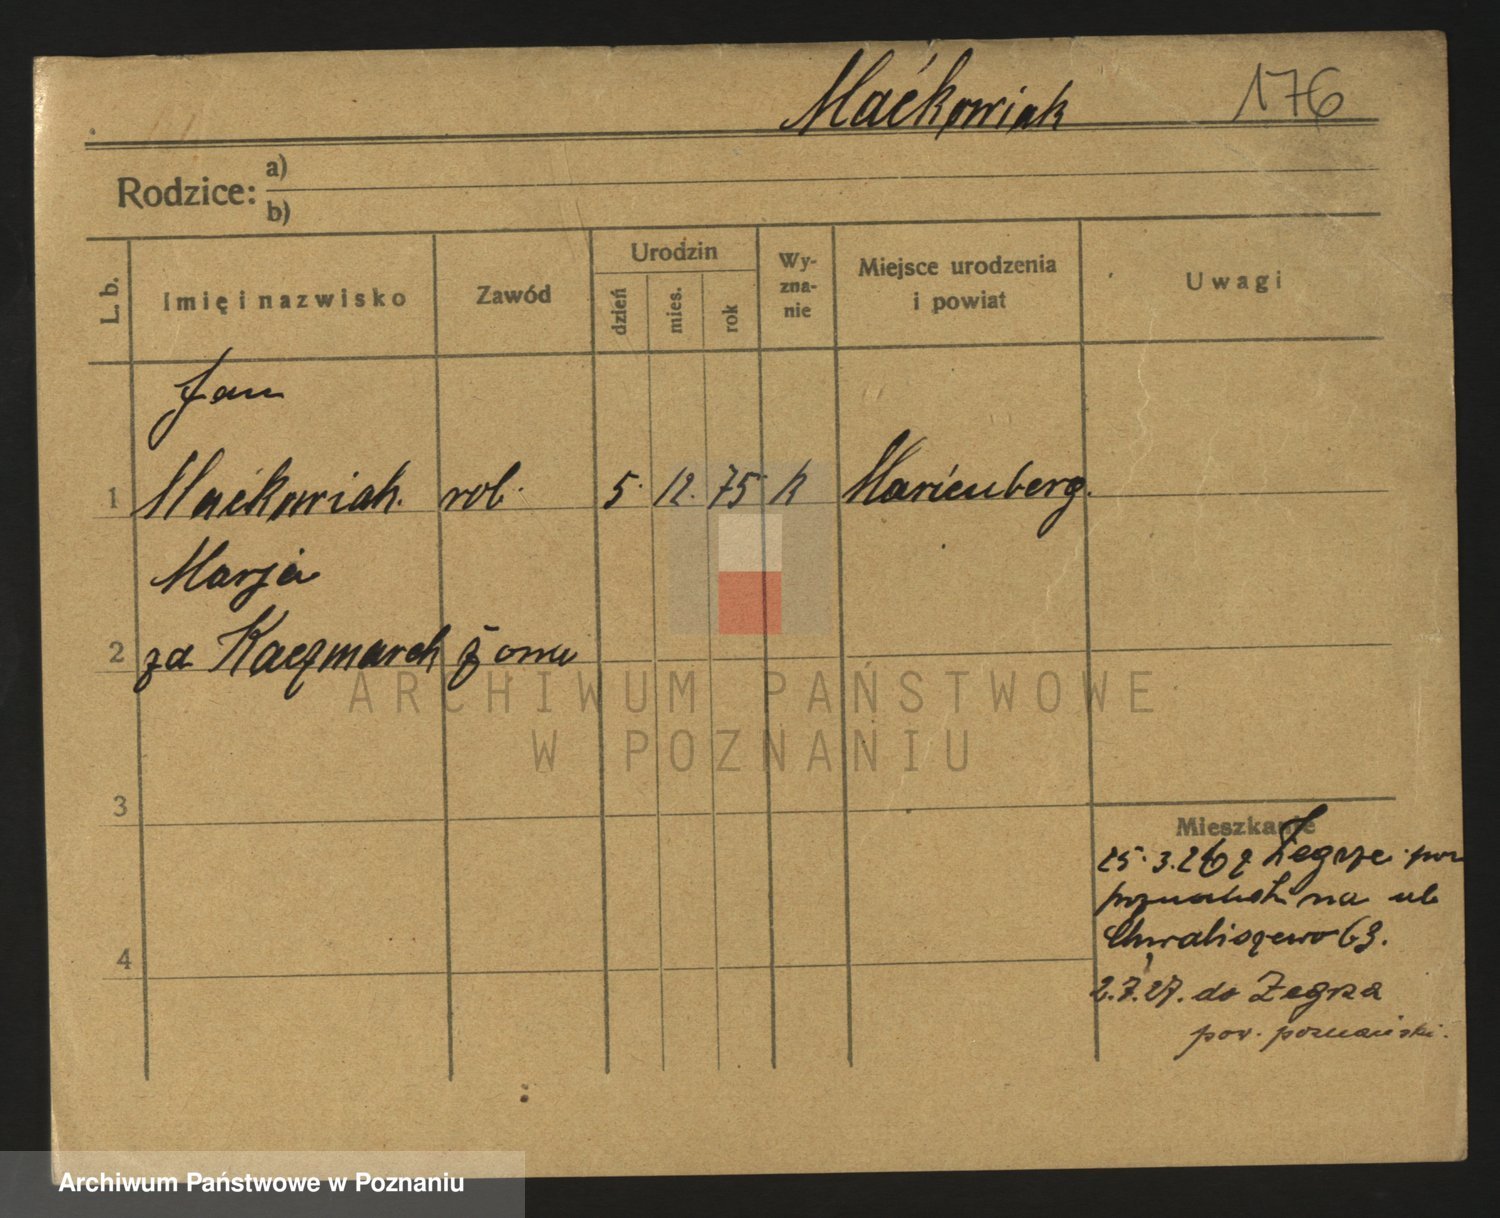 Maćkowiak 176
Rodzice:
a)
b)
L. b.
Imię i nazwisko
Zawód
Urodzin
dzień
mies.
rok
Wy-
zna-
nie
Miejsce urodzenia
i powiat
Uwagi
Jan
1 Maćkowiak. rob. 5. 12. 75 k Marienberg.
Marja
2 zd Kaczmarek żona
ARCHIWUM PAŃSTWOWE
W POZNANIU
3
Mieszkanie
25.3.26 z Żegrze pow
poznański na ul
Chwaliszewo 63.
4
2.7.27. do Zegrza
pow. poznański.
Archiwum Państwowe w Poznaniu